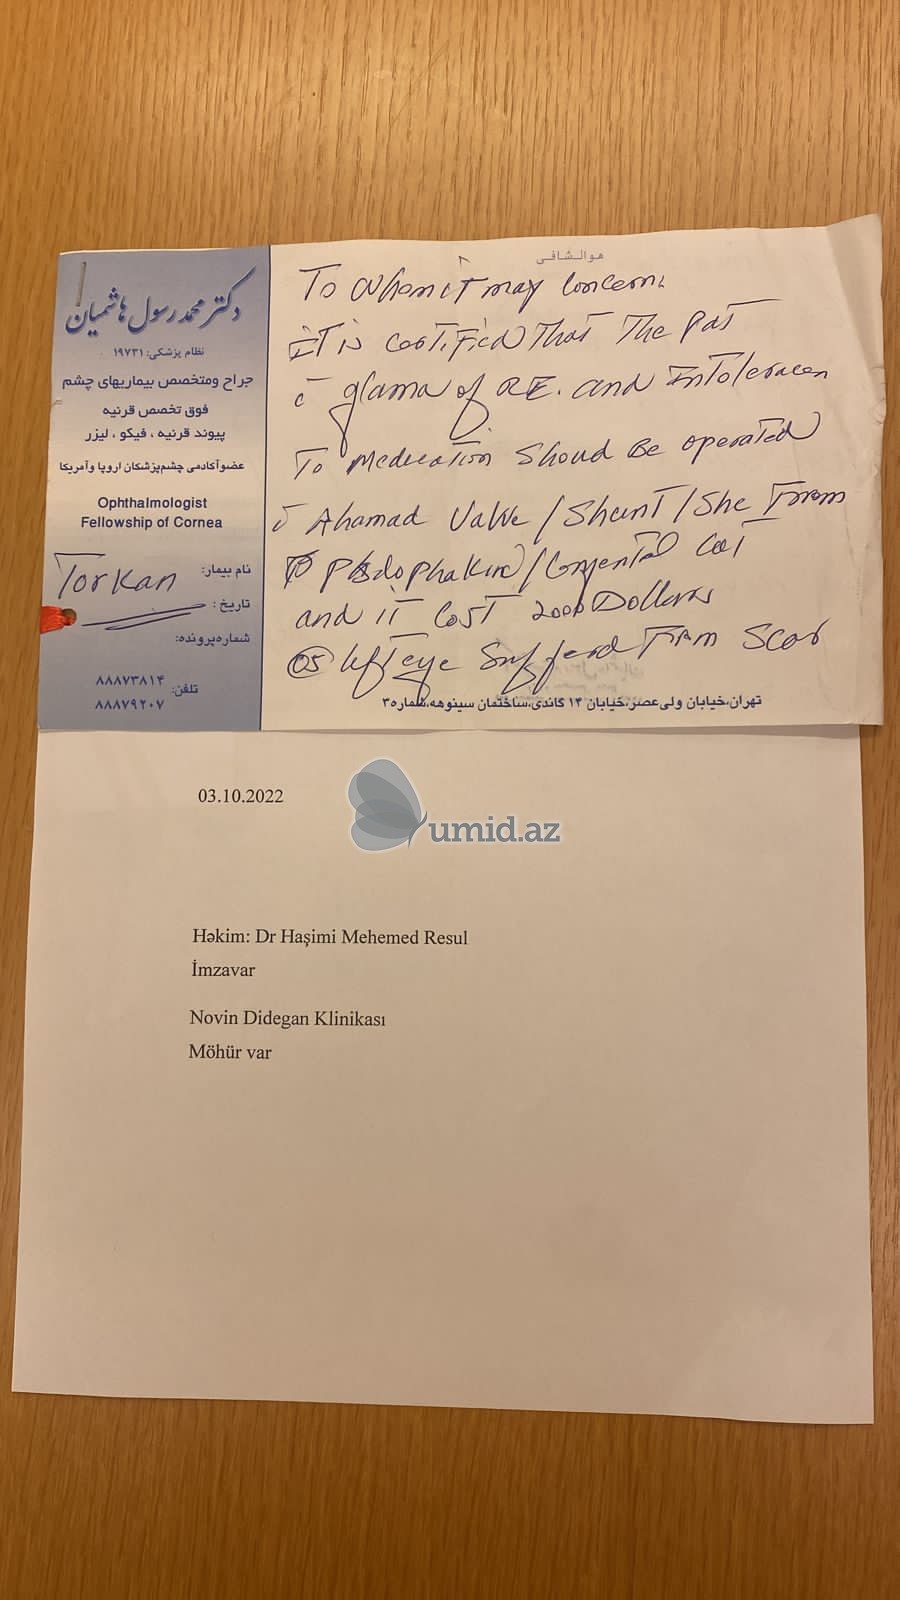 هوالشافی
دکتر محمد رسول هاشمیان
نظام پزشکی: ۱۹۷۳۱
جراح ومتخصص بیماریهای چشم
فوق تخصص قرنیه
پیوند قرنیه ، فیکو ، لیزر
عضوآکادمی چشم‌پزشکان اروپا وآمریکا
Ophthalmologist
Fellowship of Cornea
نام بیمار: Torkan
تاریخ :
شماره‌پرونده:
تلفن: ۸۸۸۷۳۸۱۴
۸۸۸۷۹۲۰۷
To whom it may Concern
it is certified that The pat
c̄ glama of RE. and Intoleracen
To Medication Shoud Be operated
c̄ Ahamad Valve / Shunt / She From
and it Cost 2000 Dollars
OS left eye Sufferd From Scar
تهران،خیابان ولی‌عصر،خیابان ۱۴ گاندی،ساختمان سینوهه،شماره۳
03.10.2022
umid.az
Həkim: Dr Haşimi Mehemed Resul
İmzavar
Novin Didegan Klinikası
Möhür var